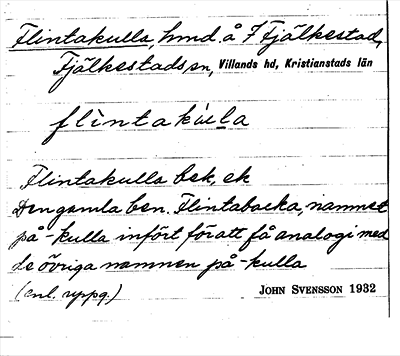 Flintakulla, hmd. å 7 Fjälkestad,
Fjälkestads sn, Villands hd, Kristianstads län
flìntakúlla
Flintakulla bek, ek
Den gamla ben. Flintabacka, namnet
på -kulla infört, för att få analogi med
de övriga namnen på -kulla
(enl. uppg.)
JOHN SVENSSON 1932